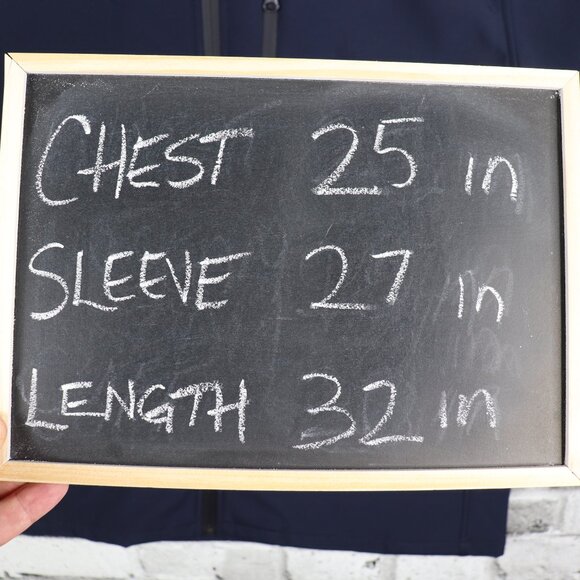 CHEST 25 in
SLEEVE 27 in
LENGTH 32 in